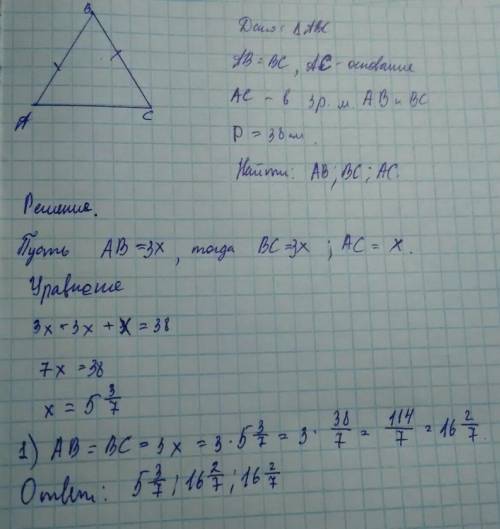 B
A
C
Дано: ΔABC
AB = BC, AC - основание
AC - в 3 р. м. AB и BC
P = 38 см.
Найти: AB; BC; AC.
Решение.
Пусть AB = 3x, тогда BC = 3x; AC = x.
Уравнение
3x + 3x + x = 38
7x = 38
x = 5 3/7
1) AB = BC = 3x = 3 · 5 3/7 = 3 · 38/7 = 114/7 = 16 2/7.
Ответ: 5 3/7; 16 2/7; 16 2/7